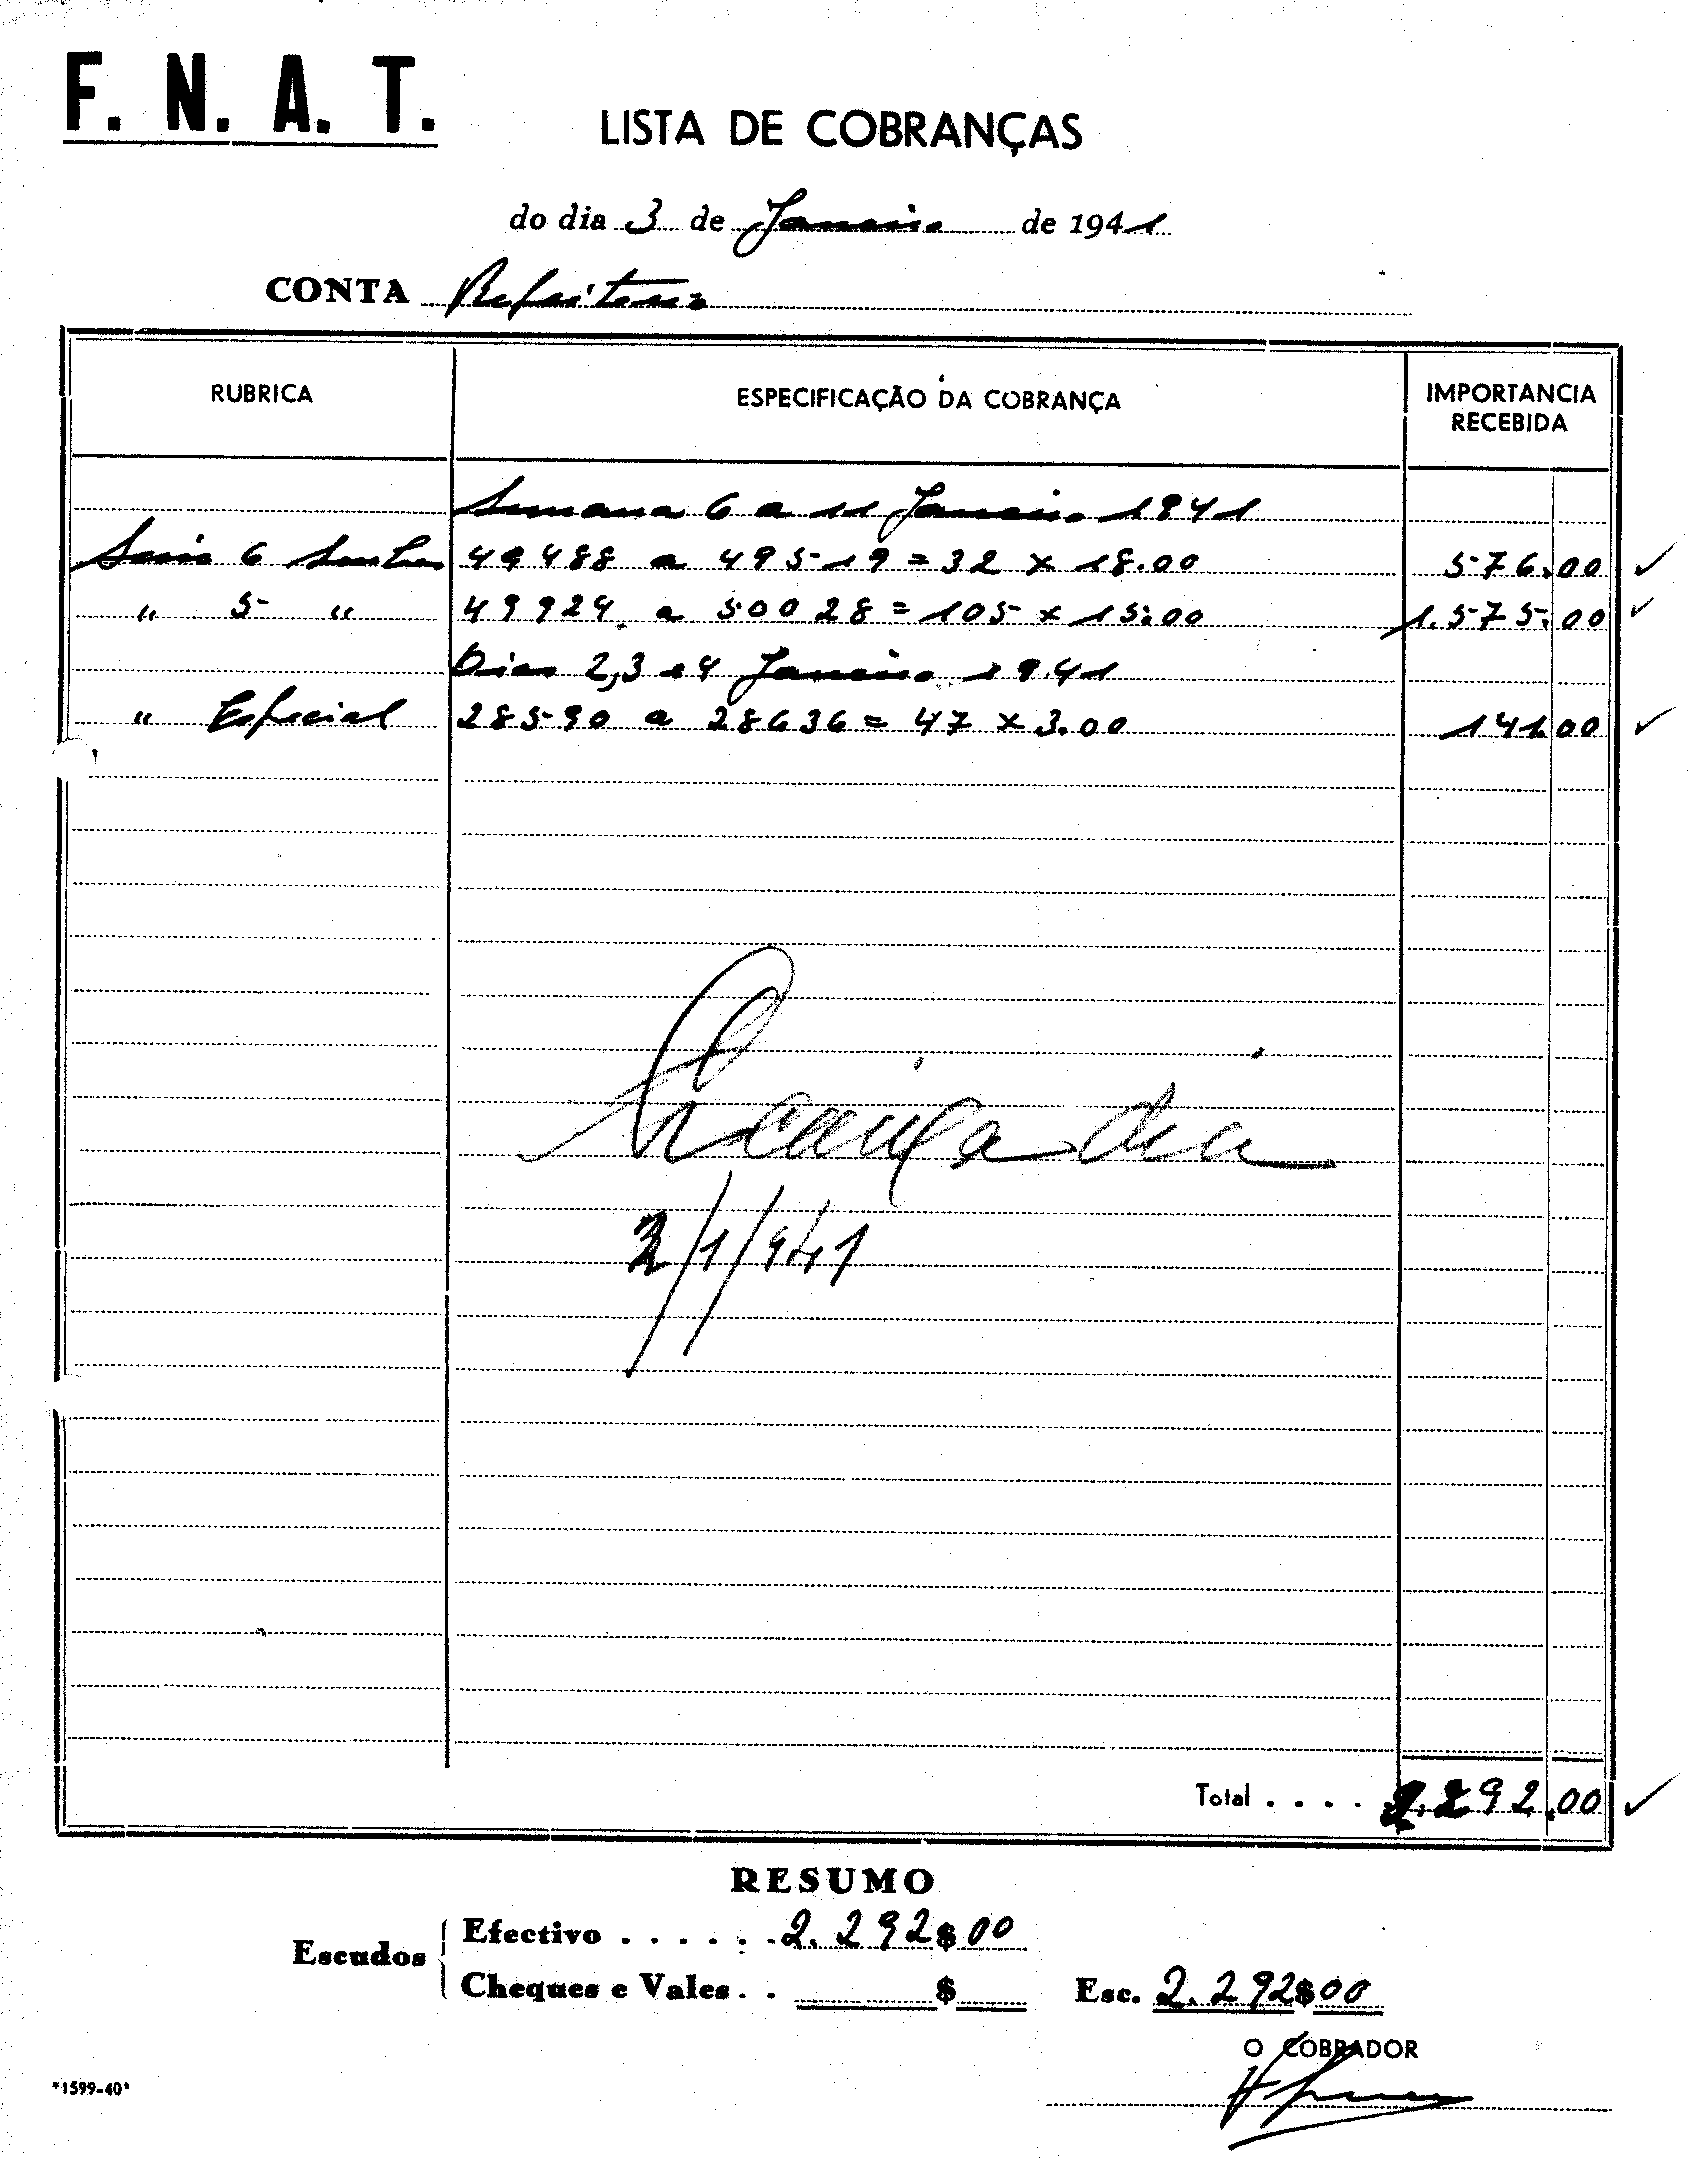 F. N. A. T.
LISTA DE COBRANÇAS
do dia 3 de Janeiro de 1941
CONTA Refeitorio
RUBRICA ESPECIFICAÇÃO DA COBRANÇA IMPORTANCIA RECEBIDA
Semana 6 a 11 Janeiro 1941
Serie 6 Senhas 49488 a 49519 = 32 x 18.00 576.00
" 5 " 49924 a 50028 = 105 x 15.00 1.575.00
Dias 2,3 e 4 Janeiro 1941
" Especial 28590 a 28636 = 47 x 3.00 141.00
/1/941
Total . . . . 2.292.00
RESUMO
Escudos
Efectivo . . . . . . 2.292$00
Cheques e Vales . . $
Esc. 2.292$00
O COBRADOR
*1599-40*